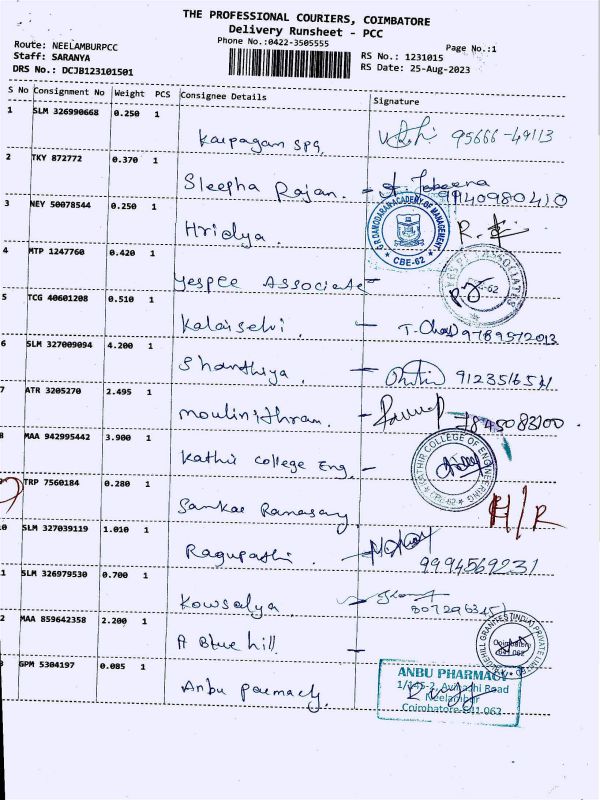 THE PROFESSIONAL COURIERS, COIMBATORE
Delivery Runsheet - PCC
Phone No.:0422-3505555
Page No.:1
Route: NEELAMBURPCC
Staff: SARANYA
DRS No.: DCJB123101501
RS No.: 1231015
RS Date: 25-Aug-2023
S No Consignment No Weight PCS Consignee Details Signature
1 SLM 326990668 0.250 1
Karpagam SPG. 95666-49113
2 TKY 872772 0.370 1
Sleepha Rajan. - Jebeena
9940980410
3 NEY 50078544 0.250 1
Hridya.
G.R DAMODARAN ACADEMY OF MANAGEMENT
CBE-62
4 MTP 1247760 0.420 1
Yespee Associate -
ASSOCIATES
5 TCG 40601208 0.510 1
Kalaiselvi - 9789572013
6 SLM 327009094 4.200 1
Shanthiya. -
7 ATR 3205270 2.495 1
- 7845083100.
8 MAA 942995442 3.900 1
Kathir College Eng. -
KATHIR COLLEGE OF ENGINEERING
CBE-62
TRP 7560184 0.280 1
Sankar Ramasamy H/R
0 SLM 327039119 1.010 1
Ragupathi.
9994569231
1 SLM 326979530 0.700 1
Kowsalya
2 MAA 859642358 2.200 1
A Blue hill. -
BLUEHILL GRANITES (INDIA) PRIVATE LIMITED
Coimbatore
641 062
GPM 5304197 0.085 1
Anbu parmacy.
ANBU PHARMACY
1/145-2, Avinashi Road
Neelambur
Coimbatore-641 062